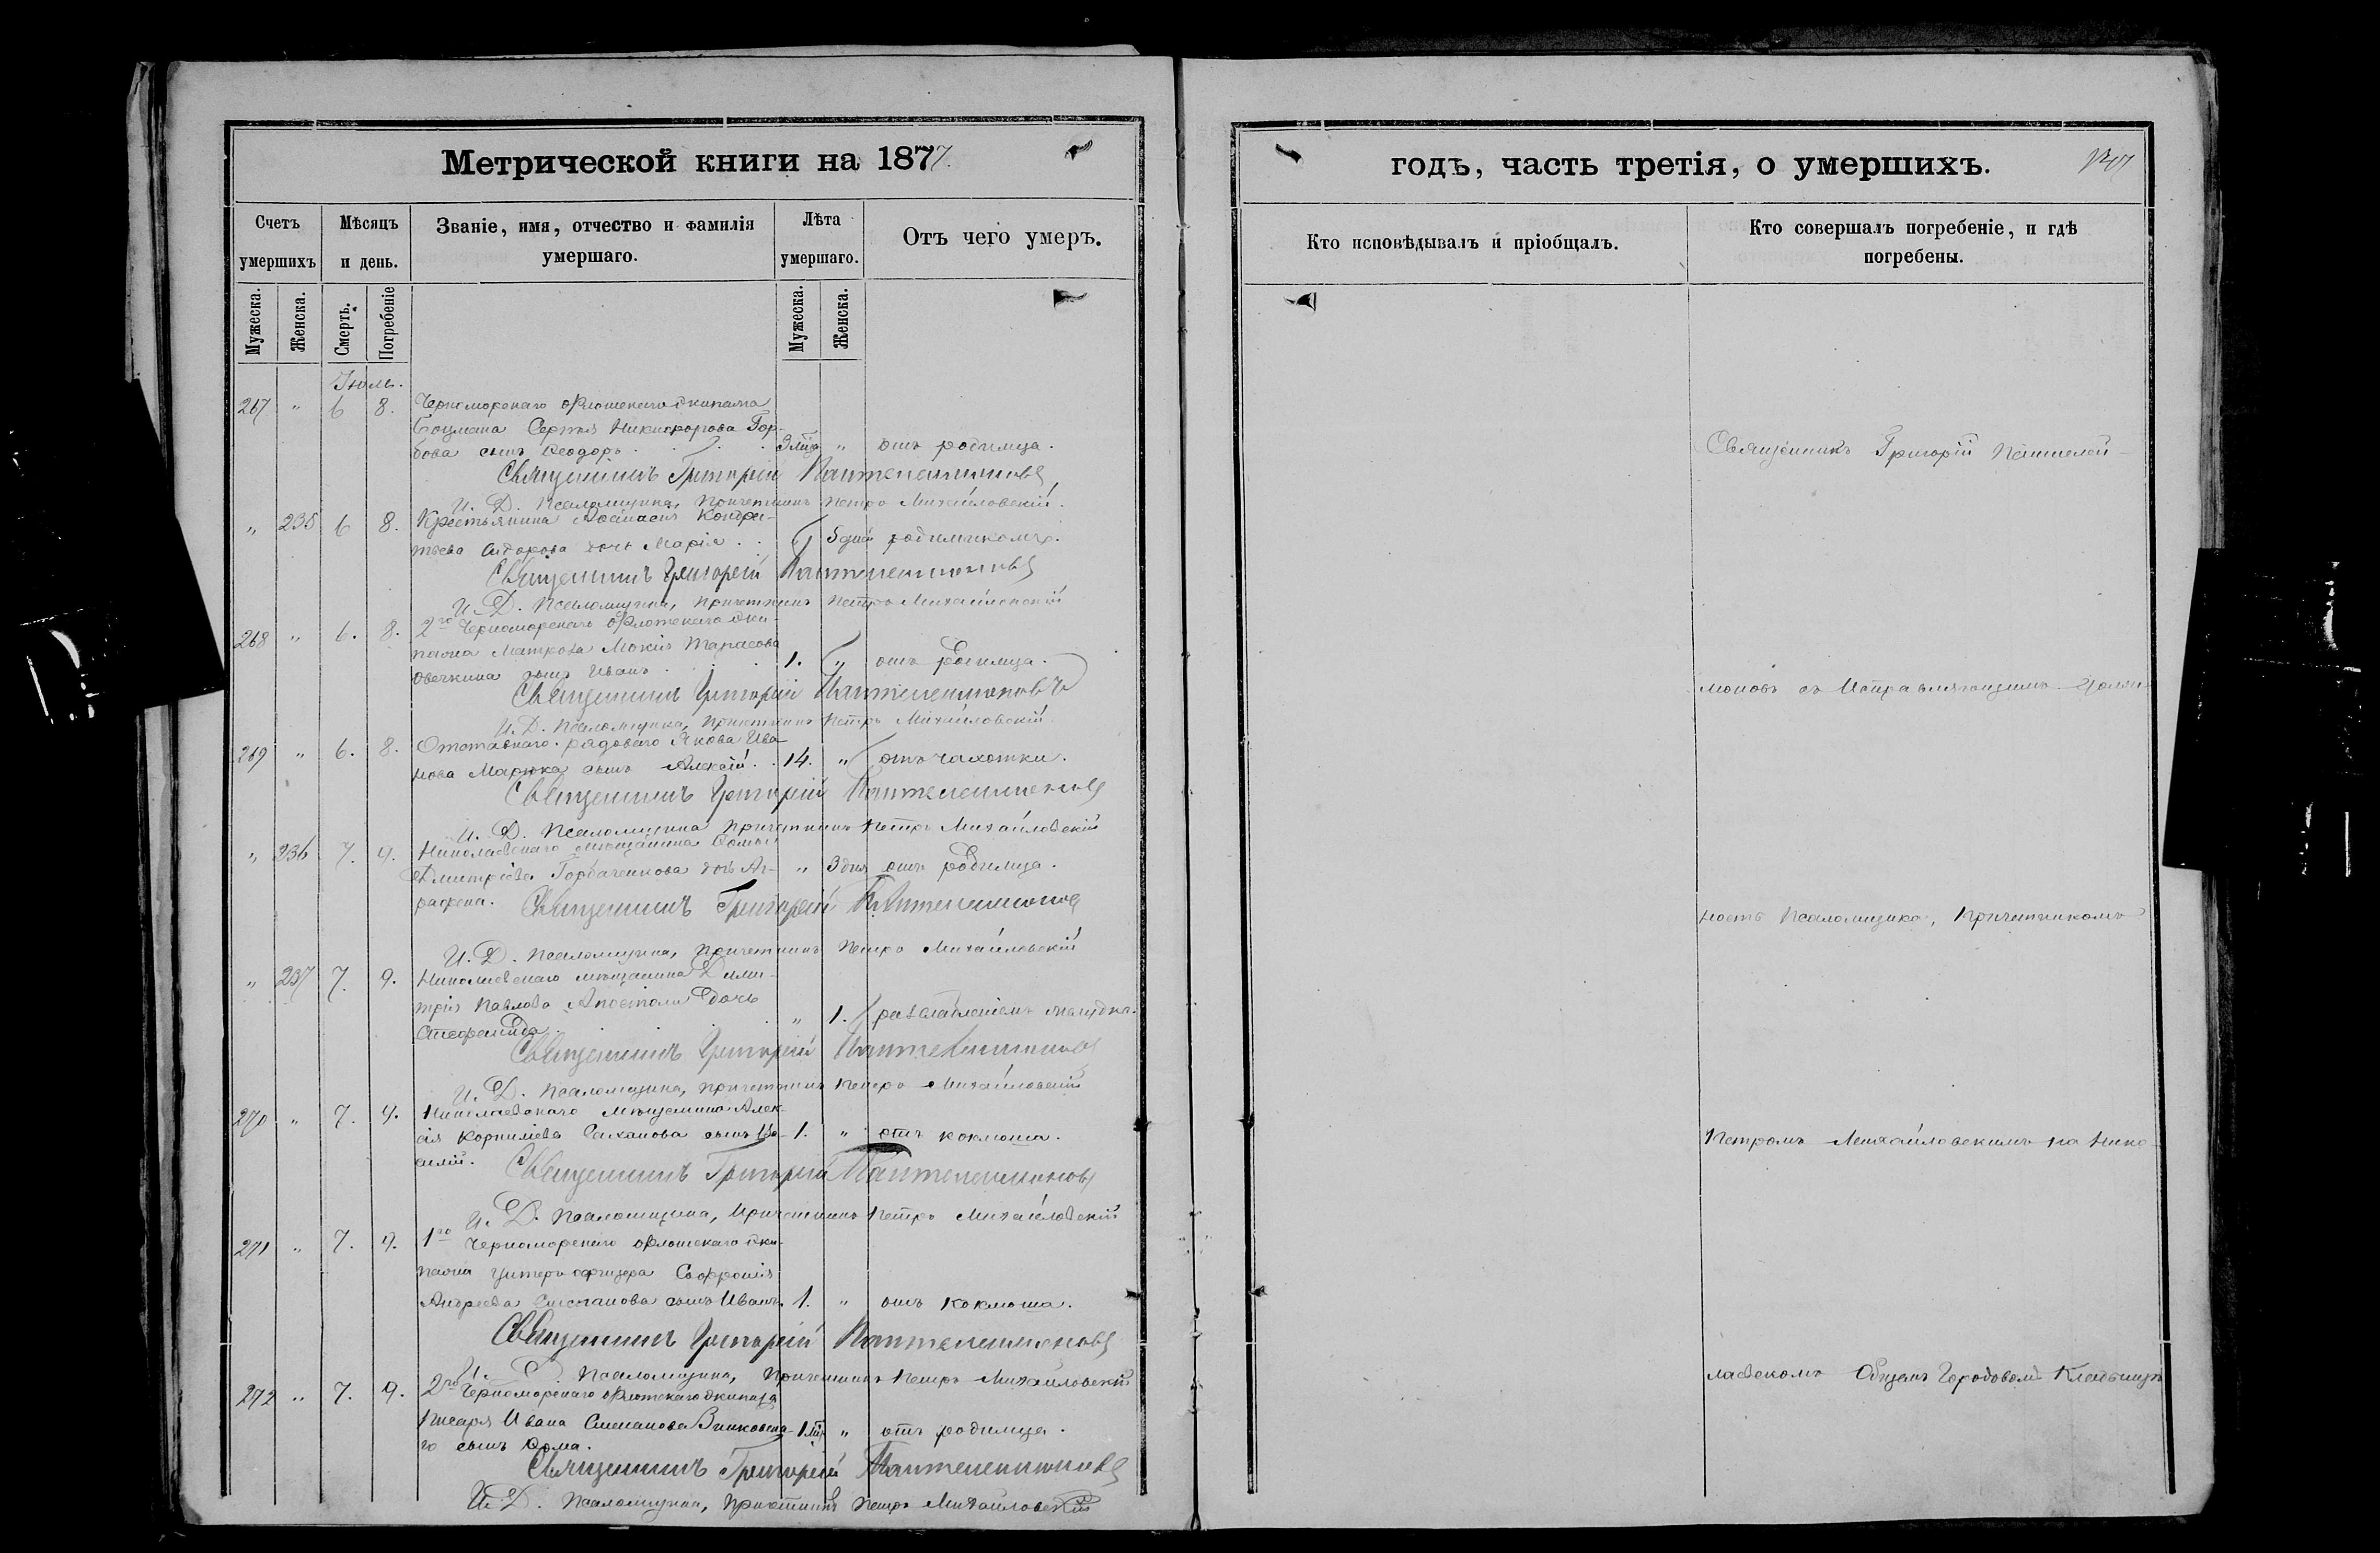 Метрической книги на 1877.
Счетъ умершихъ
Мѣсяцъ и день.
Званіе, имя, отчество и фамилія умершаго.
Лѣта умершаго.
Отъ чего умеръ.
Мужеска.
Женска.
Смерть.
Погребеніе
Мужеска.
Женска.
Іюль.
267 " 6 8. Черноморскаго Флотскаго Экипажа
Боцмана Сергѣя Никифорова Гор-
бова сынъ Ѳеодоръ . . . " отъ родимца.
Священникъ Григорій Пантелеимоновъ
И. Д. Псаломщика, Причетникъ Петръ Михайловскій.
" 235 6 8. Крестьянина Аѳанасія Кондра-
тьева Сидорова дочь Марія . . 5 дней родимчикомъ.
Священникъ Григорій Пантелеимоновъ
И. Д. Псаломщика, Причетникъ Петръ Михайловскій
268 " 6. 8. 2го Черноморскаго Флотскаго Эки-
пажа Матроса Мокія Тарасова
Овечкина сынъ Иванъ . . . 1. " отъ родимца.
Священникъ Григорій Пантелеимоновъ
И. Д. Псаломщика, Причетникъ Петръ Михайловскій.
269 " 6. 8. Отставнаго рядоваго Якова Ива-
нова Марюка сынъ Алексій . . 14. " отъ чахотки.
Священникъ Григорій Пантелеимоновъ
И. Д. Псаломщика Причетникъ Петръ Михайловскій
" 236 7. 9. Николаевскаго мѣщанина Ѳомы
Дмитріева Горбаченкова дочь Аг- " 3 дня отъ родимца.
рафена.
Священникъ Григорій Пантелеимоновъ
И. Д. Псаломщика, Причетникъ Петръ Михайловскій
" 237 7. 9. Николаевскаго мѣщанина Дими-
трія Павлова Апостоли дочь
Стефанида . . . " 1. разслабленіемъ желудка.
Священникъ Григорій Пантелеимоновъ
И. Д. Псаломщика, Причетникъ Петръ Михайловскій
270 " 7. 9. Николаевскаго мѣщанина Алек-
сія Корнилієва Саханова сынъ Ва- 1. " отъ коклюша.
силій.
Священникъ Григорій Пантелеимоновъ
И. Д. Псаломщика, Причетникъ Петръ Михайловскій
271 " 7. 9. 1го Черноморскаго Флотскаго Эки-
пажа Унтеръ офицера Софронія
Андреева сынъ Иванъ. 1. " отъ коклюша.
Священникъ Григорій Пантелеимоновъ
И. Д. Псаломщика, Причетникъ Петръ Михайловскій
272 " 7. 9. 2го Черноморскаго Флотскаго Экипажа
Писаря Ивана Степанова Винковска-
го сынъ Ѳома. " отъ родимца.
Священникъ Григорій Пантелеимоновъ
И. Д. Псаломщика, Причетникъ Петръ Михайловскій
годъ, часть третія, о умершихъ.
Кто исповѣдывалъ и пріобщалъ.
Кто совершалъ погребеніе, и гдѣ погребены.
Священникъ Григорій Пантелей-
моновъ съ Исправляющимъ долж-
ность Псаломщика, Причетникомъ
Петромъ Михайловскимъ на Нико-
лаевскомъ Общемъ Городовомъ Кладбищѣ